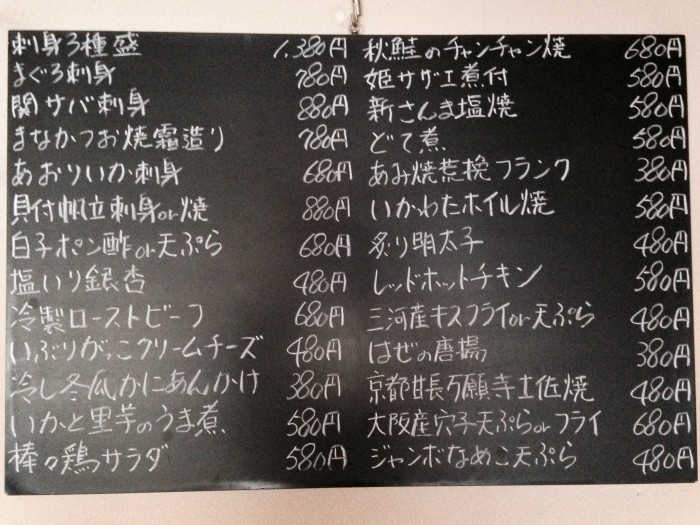 刺身3種盛 1,380円
まぐろ刺身 780円
関サバ刺身 880円
まなかつお焼霜造り 780円
あおりいか刺身 680円
貝付帆立刺身or焼 880円
白子ポン酢or天ぷら 680円
塩いり銀杏 480円
冷製ローストビーフ 680円
いぶりがっこクリームチーズ 480円
冷し冬瓜かにあんかけ 380円
いかと里芋のうま煮 580円
棒々鶏サラダ 580円
秋鮭のチャンチャン焼 680円
姫サザエ煮付 580円
新さんま塩焼 580円
どて煮 580円
あみ焼荒挽フランク 380円
いかわたホイル焼 580円
炙り明太子 480円
レッドホットチキン 580円
三河産キスフライor天ぷら 480円
はぜの唐揚 380円
京都甘長万願寺土佐焼 480円
大阪産穴子天ぷらorフライ 680円
ジャンボなめこ天ぷら 480円